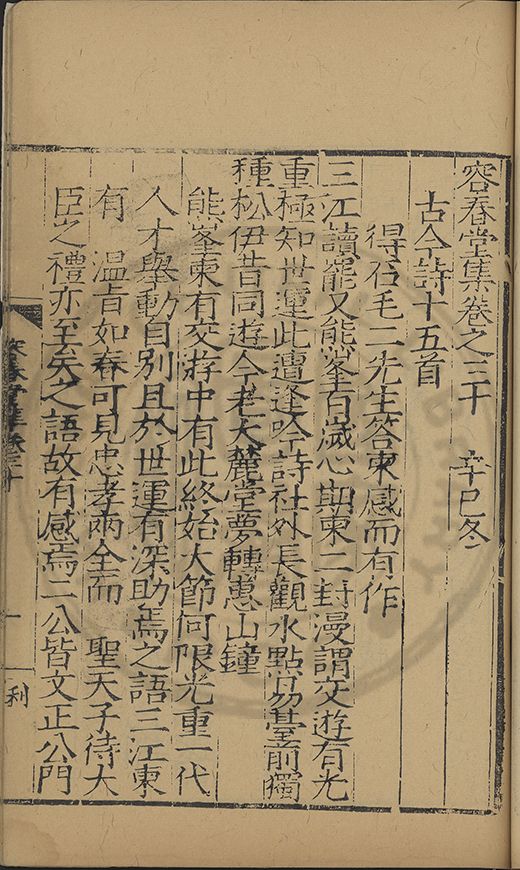 容春堂集卷之二十 辛巳冬
古今詩十五首
得石毛二先生答柬感而有作
三江讀罷又熊峯百歲心期柬二封漫謂交遊有光
重極知世運此遭逢吟詩社外長觀水點易臺前獨
種松伊昔同遊今老大麓堂夢轉惠山鐘
熊峯柬有交游中有此終始大節何限光重一代
人才舉動自别且於世運有深助焉之語三江柬
有 溫旨如春可見忠孝兩全而 聖天子待大
臣之禮亦至矣之語故有感焉二公皆文正公門
容春堂集卷二十
一
利